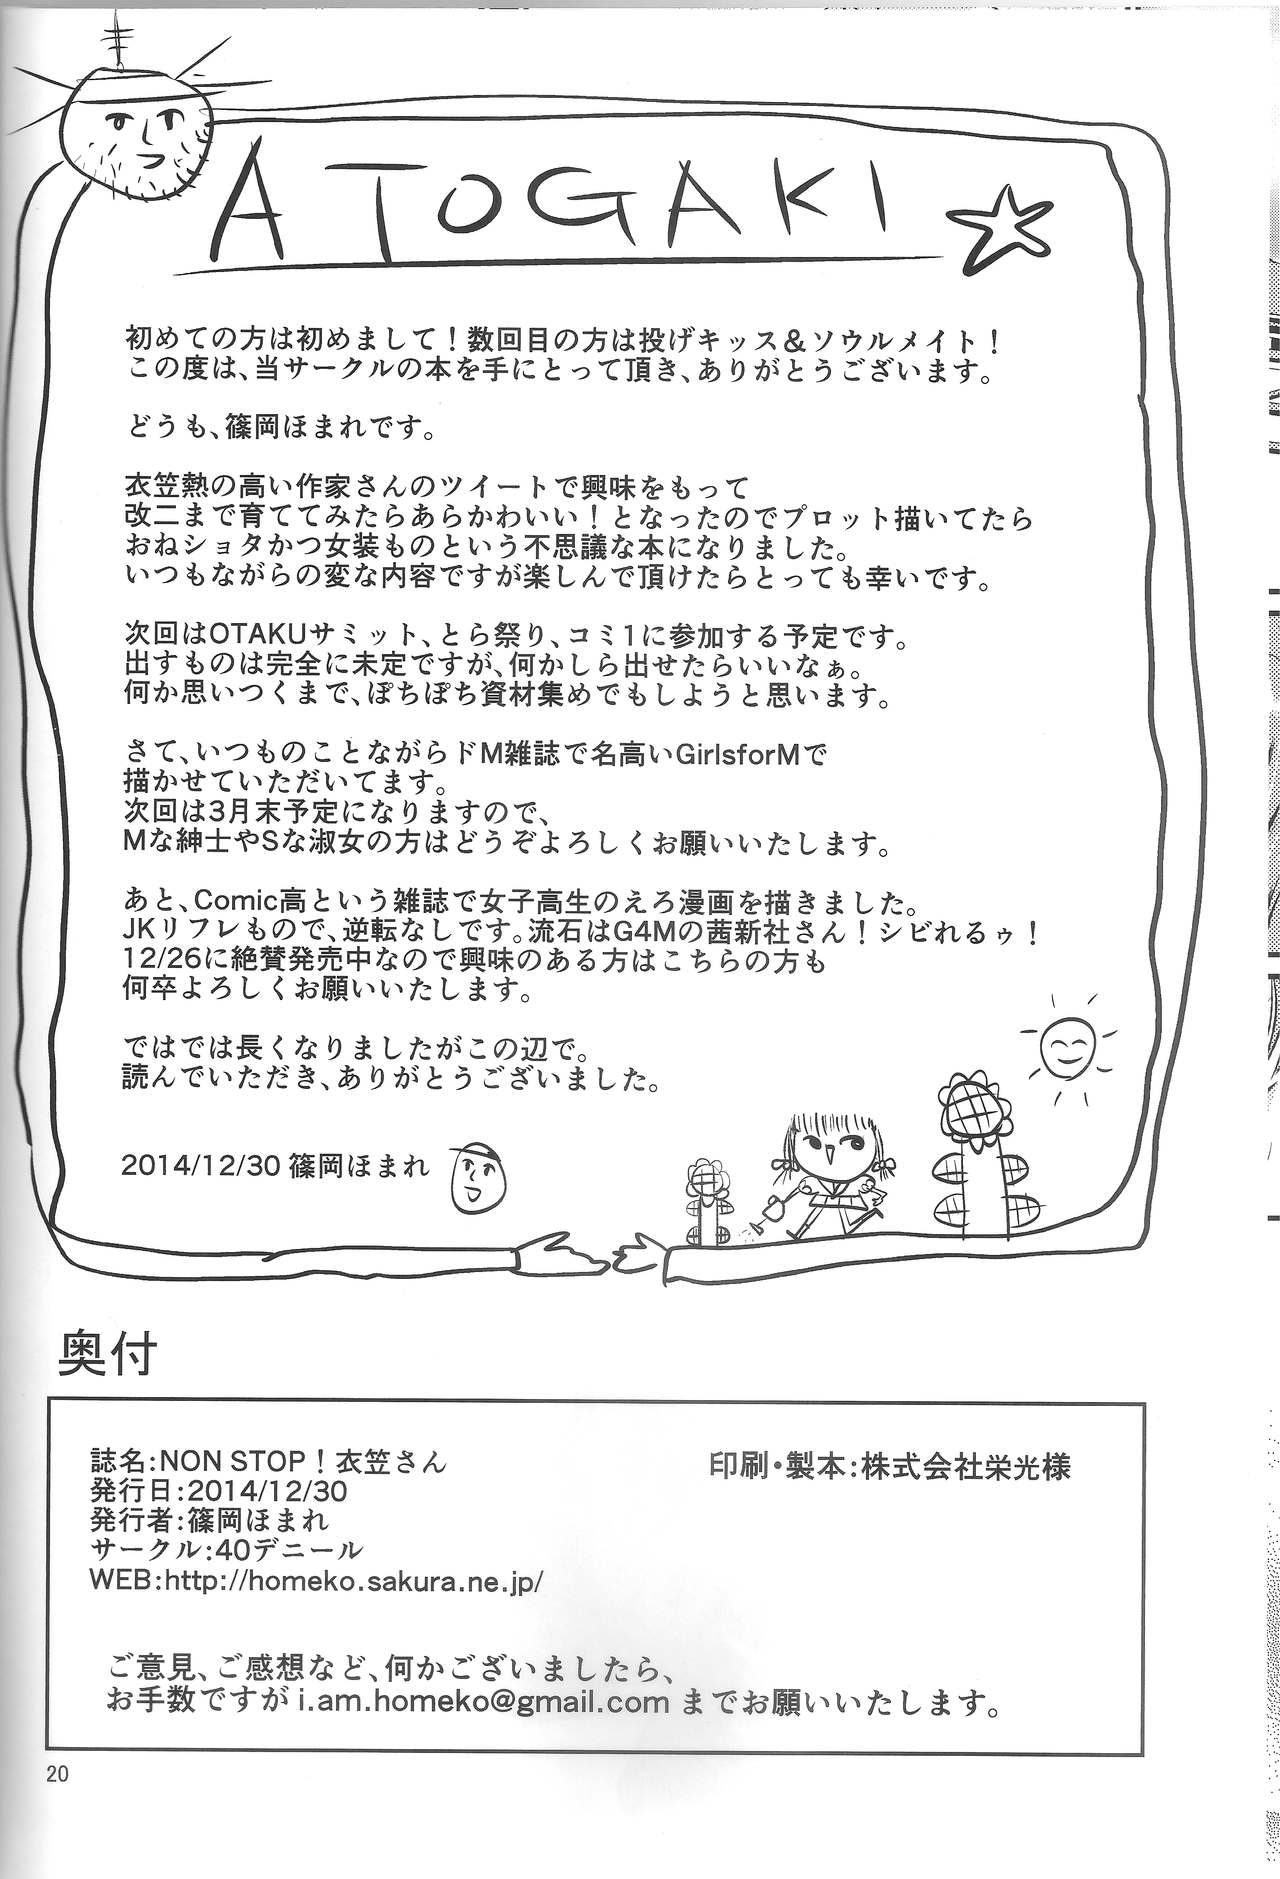 ATOGAKI
初めての方は初めまして！数回目の方は投げキッス＆ソウルメイト！
この度は、当サークルの本を手にとって頂き、ありがとうございます。
どうも、篠岡ほまれです。
衣笠熱の高い作家さんのツイートで興味をもって
改二まで育ててみたらあらかわいい！となったのでプロット描いてたら
おねショタかつ女装ものという不思議な本になりました。
いつもながらの変な内容ですが楽しんで頂けたらとっても幸いです。
次回はOTAKUサミット、とら祭り、コミ1に参加する予定です。
出すものは完全に未定ですが、何かしら出せたらいいなぁ。
何か思いつくまで、ぽちぽち資材集めでもしようと思います。
さて、いつものことながらドM雑誌で名高いGirlsforMで
描かせていただいてます。
次回は3月末予定になりますので、
Mな紳士やSな淑女の方はどうぞよろしくお願いいたします。
あと、Comic高という雑誌で女子高生のえろ漫画を描きました。
JKリフレもので、逆転なしです。流石はG4Mの茜新社さん！シビれるゥ！
12/26に絶賛発売中なので興味のある方はこちらの方も
何卒よろしくお願いいたします。
ではでは長くなりましたがこの辺で。
読んでいただき、ありがとうございました。
2014/12/30 篠岡ほまれ
奥付
誌名:NON STOP！衣笠さん
発行日:2014/12/30
発行者:篠岡ほまれ
サークル:40デニール
WEB:http://homeko.sakura.ne.jp/
印刷・製本:株式会社栄光様
ご意見、ご感想など、何かございましたら、
お手数ですが i.am.homeko@gmail.com までお願いいたします。
20